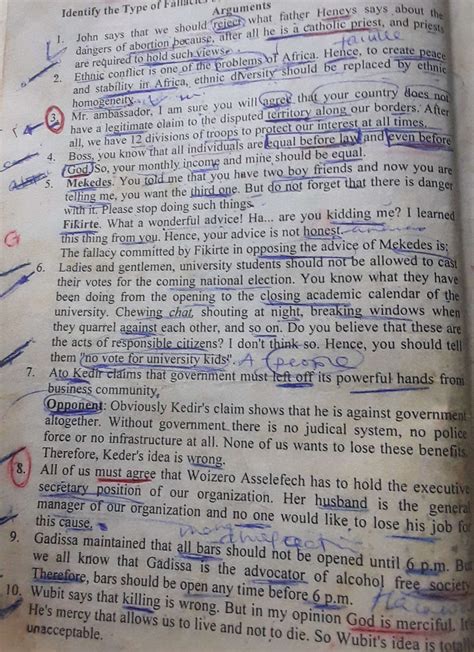 Identify the Type of Fallacies
Arguments
1. John says that we should reject what father Heneys says about the
dangers of abortion because, after all he is a catholic priest, and priests
are required to hold such views.
2. Ethnic conflict is one of the problems of Africa. Hence, to create peace
and stability in Africa, ethnic diversity should be replaced by ethnic
homogeneity.
3. Mr. ambassador, I am sure you will agree that your country does not
have a legitimate claim to the disputed territory along our borders. After
all, we have 12 divisions of troops to protect our interest at all times.
4. Boss, you know that all individuals are equal before law and even before
God. So, your monthly income and mine should be equal.
5. Mekedes. You told me that you have two boy friends and now you are
telling me, you want the third one. But do not forget that there is danger
with it. Please stop doing such things.
Fikirte. What a wonderful advice! Ha... are you kidding me? I learned
this thing from you. Hence, your advice is not honest.
The fallacy committed by Fikirte in opposing the advice of Mekedes is;
G
6. Ladies and gentlemen, university students should not be allowed to cast
their votes for the coming national election. You know what they have
been doing from the opening to the closing academic calendar of the
university. Chewing chat, shouting at night, breaking windows when
they quarrel against each other, and so on. Do you believe that these are
the acts of responsible citizens? I don't think so. Hence, you should tell
them 'no vote for university kids'. A people
7. Ato Kedir claims that government must left off its powerful hands from
business community,
Opponent: Obviously Kedir's claim shows that he is against government
altogether. Without government there is no judical system, no police
force or no infrastructure at all. None of us wants to lose these benefits.
Therefore, Keder's idea is wrong.
8. All of us must agree that Woizero Asselefech has to hold the executive
secretary position of our organization. Her husband is the general
manager of our organization and no one would like to lose his job for
this cause.
9. Gadissa maintained that all bars should not be opened until 6 p.m. But
we all know that Gadissa is the advocator of alcohol free society.
Therefore, bars should be open any time before 6 p.m.
10. Wubit says that killing is wrong. But in my opinion God is merciful. It's
He's mercy that allows us to live and not to die. So Wubit's idea is totally
unacceptable.